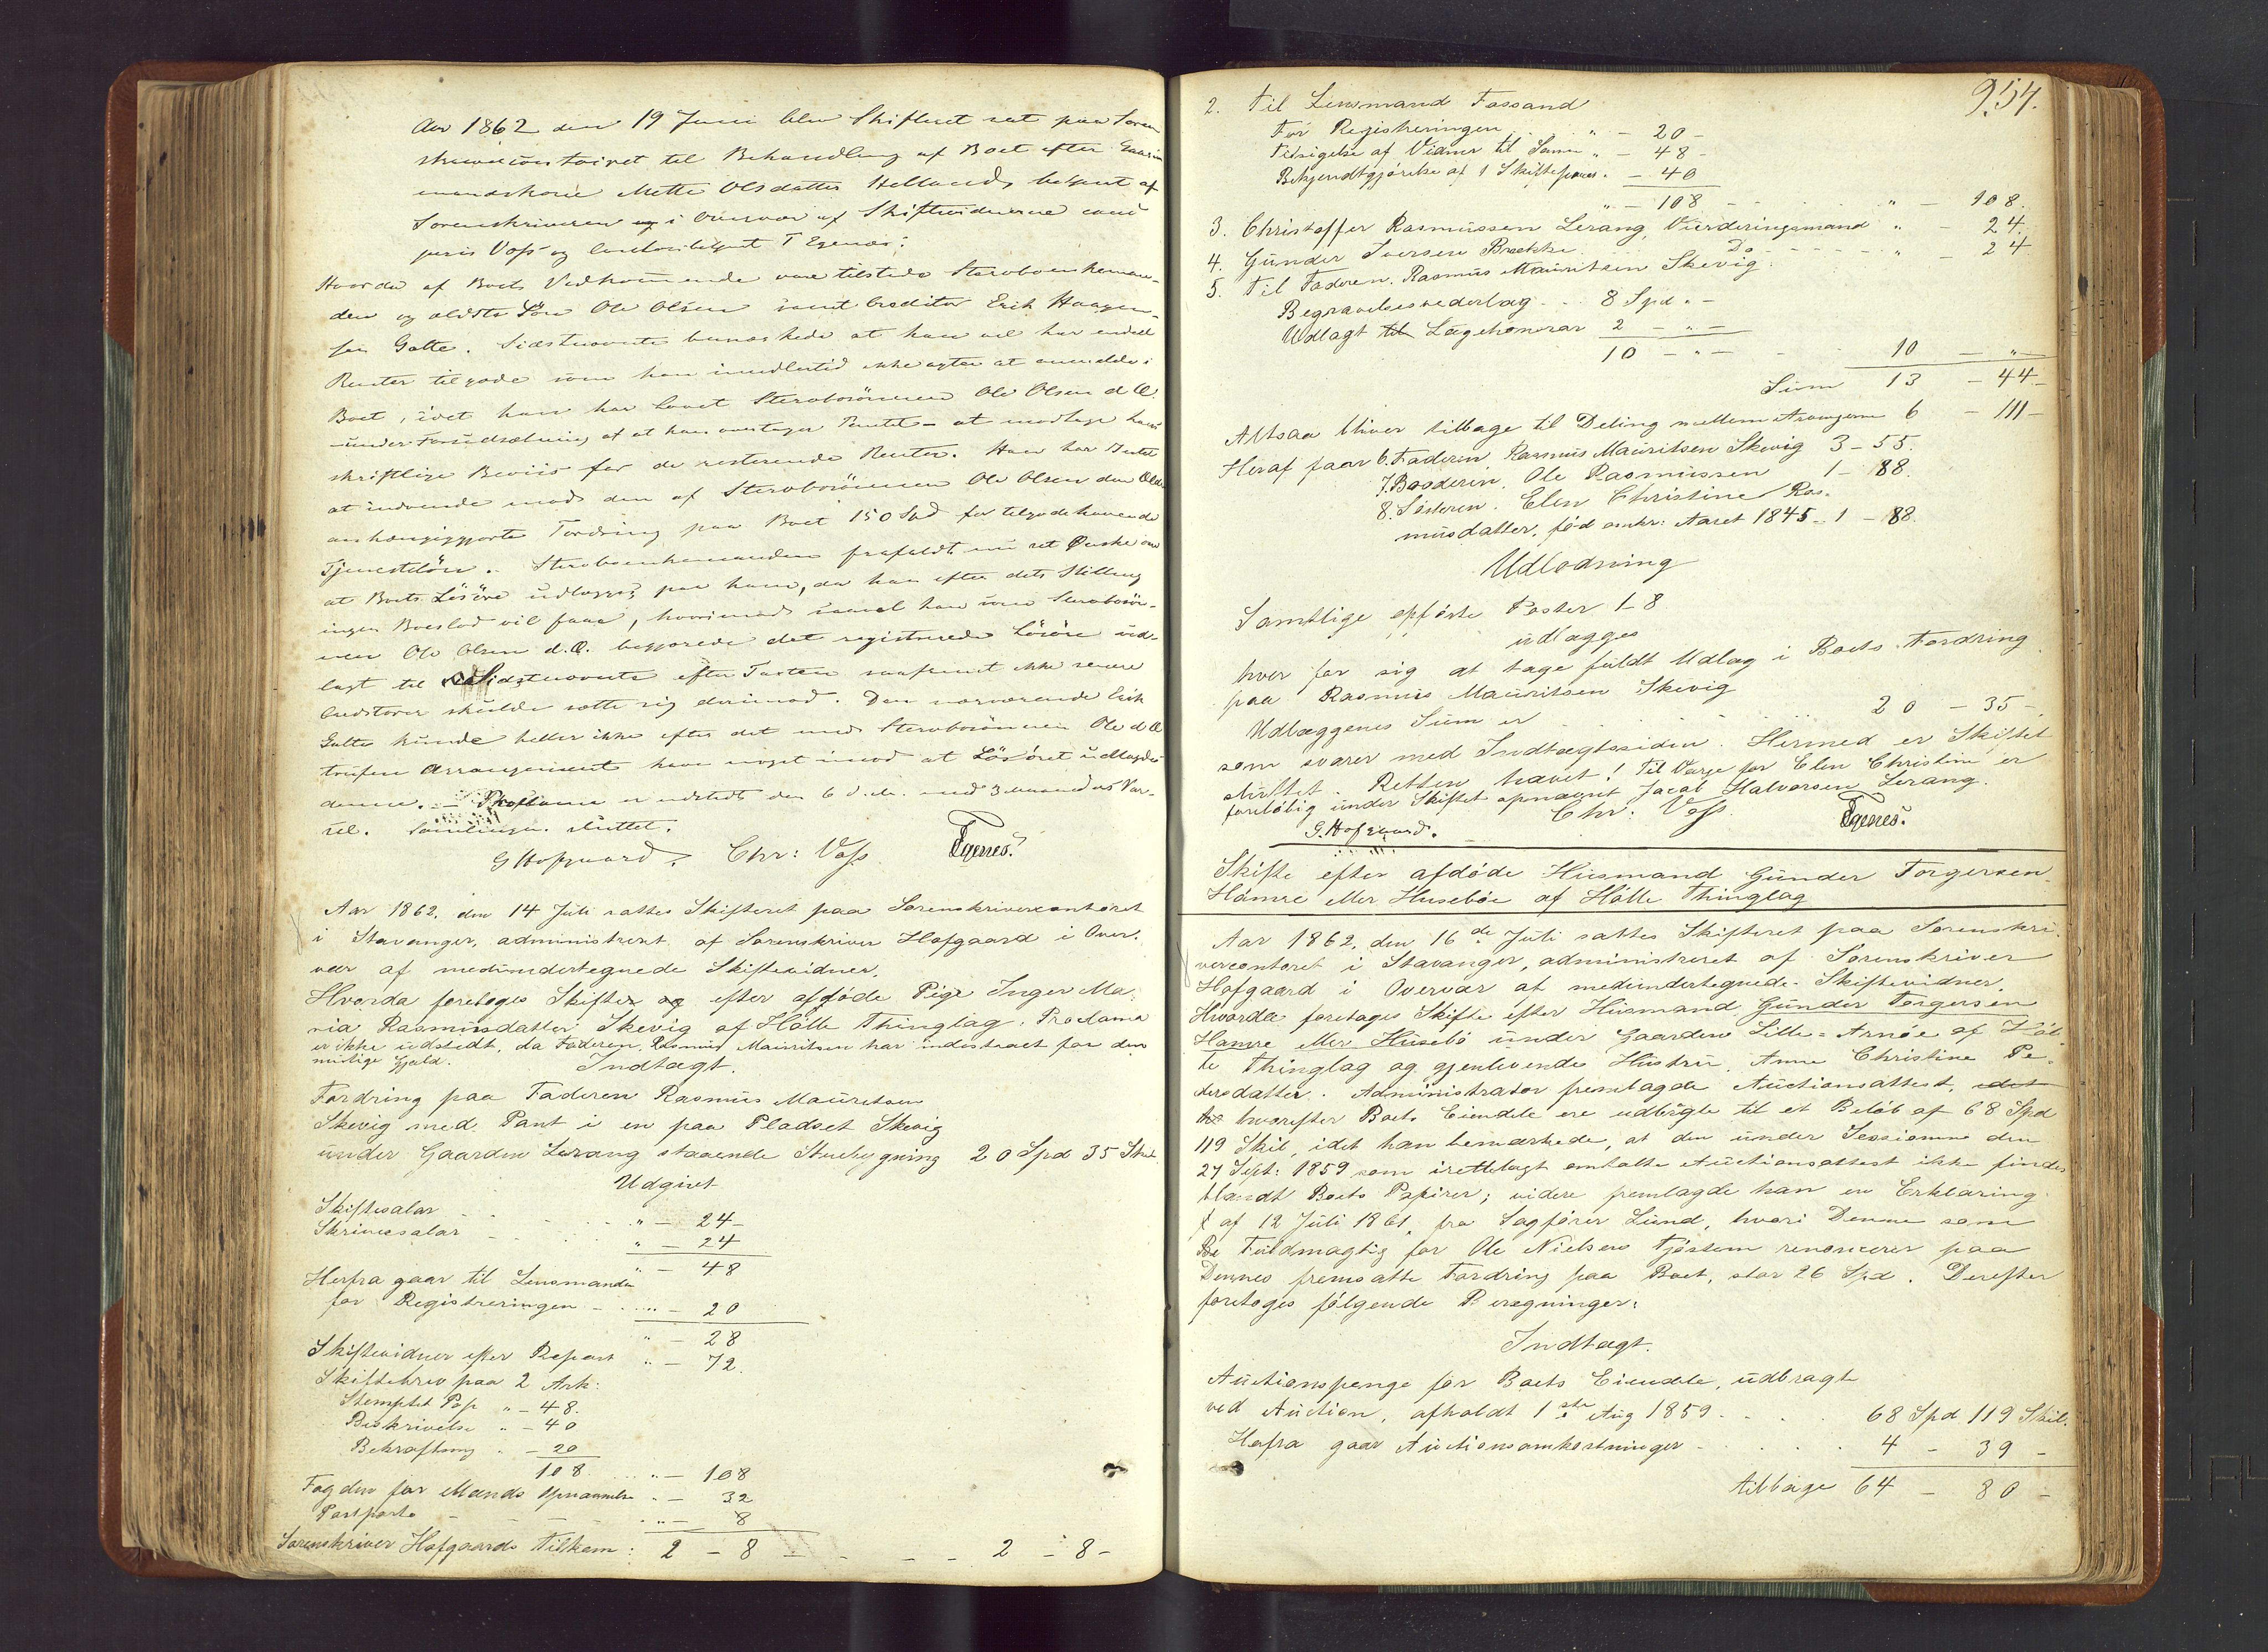 Aar 1862 den 19 Juni blev Skifteret sat paa Soren-
skrivercontoiret til Behandling af Boet efter Gaard-
mandskone Mette Olsdatter Helland, betjent af
Sorenskriveren og i Overvær af Skiftevidnerne cand
juris Voss og Contorbetjent T Egenæs:
Hvorda af Boets Vedkommende vare tilstede Stervboenkeman-
den og ældste Søn Ole Olsen samt Creditor Erik Haagen-
sen Galte. Sidstnævnte bemærkede at han vel har endeel
Renter tilgode som han imidlertid ikke agter at anmelde i
Boet, idet han har lovet Stervbosønnen Ole Olsen d Æ.
under Forudsætning af at han overtager Pantet – at modtage hans
skriftlige Beviis for de resterende Renter. Han har Intet
at indvende mod den af Stervbosønnen Ole Olsen den Ældre
anhængiggjorte Fordring paa Boet 150 Spd for tilgodehavende
Tjenesteløn. Stervboenkemanden frafaldt nu sit Ønske om
at Boets Løsøre udlægges paa ham, da han efter dets Stilling
ingen Boeslod vil faae, hvorimod saavel han som Stervbosøn-
nen Ole Olsen d.Æ. begjærede det registrerede Løsøre ud-
lagt til Sidstnævnte efter Taxten saafremt ikke senere
Creditorer skulde sætte sig derimod. Den nærværende Erik
Galte kunde heller ikke efter det med Stervbosønnen Ole d Æ
trufne Arrangement have noget imod at Løsøret udlagdes
denne. – Proclama er udstedt den 6 d.M. med 3 Maaneders Var-
sel. Samlingen sluttet.
G Hofgaard. Chr: Voss. Egenes.
Aar 1862, den 14 Juli sattes Skifteret paa Sorenskrivercontoret
i Stavanger, administreret af Sorenskriver Hofgaard i Over-
vær af medundertegnede Skiftevidner.
Hvorda foretoges Skifte efter afdøde Pige Inger Ma-
ria Rasmusdatter Skevig af Hölle Thinglag. Proclama
er ikke udstedt, da Faderen, Rasmus Mauritsen har indestaaet for den
mulige Gjæld.
Indtægt.
Fordring paa Faderen Rasmus Mauritsen
Skevig med Pant i en paa Pladset Skevig
under Gaarden Lerang staaende Stuebygning 20 Spd 35 Skil.
Udgivt
Skiftesalar - - - - " – 24 –
Skriversalar - - - " – 24
" – 48
Herfra gaar til Lensmanden
for Registreringen - - " – 20
" – 28
Skiftevidner efter Repart " – 72.
Skiftebrev paa 2 Ark:
Stemplet Pap " – 48.
Beskrivelse " – 40
Bekræftning " – 20
108 ... " – 108
Fogden for Mænds Opnævnelse " – 32
Postporto - - - - " – 8
Sorenskriver Hofgaards Tilkom: 2 – 8 – - - - 2 – 8 –
954.
2. Til Lensmand Fossand
For Registreringen . . " – 20 –
Tilsigelse af Vidner til Samme " – 48 –
Bekjendtgjørelse af 1 Skifte " – 40
" – 108 - - - " – 108.
3. Christoffer Rasmussen Lerang, Vurderingsmand " – 24.
4. Gunder Iversen Brekke Do - - - " – 24
5. Til Faderen, Rasmus Mauritsen Skevig.
Begravelsesvederlag . . 8 Spd " –
Udlagt til Lægehonorar 2 – " –
10 – " – - - 10 – " –
Sum 13 – 44 –
Altsaa bliver tilbage til Deling mellem Arvingerne 6 – 111 –
Heraf faar 6. Faderen Rasmus Mauritsen Skevig 3 – 55.
7. Broderen, Ole Rasmussen 1 – 88.
8. Søsteren, Elen Christine Ras-
musdatter, fød omkr: Aaret 1845 – 1 – 88.
Udlodning
Samtlige opførte Poster 1–8
udlægges
hver for sig at tage fuldt Udlæg i Boets Fordring
paa Rasmus Mauritsen Skevig
Udlæggenes Sum er . . . . . . 20 – 35 –
som svarer med Indtægtssiden. Hermed er Skiftet
sluttet. Retten hævet! Til Værge for Elen Christine er
foreløbig under Skiftet opnævnt Jacob Halvorsen Lerang.
G. Hofgaard. Chr: Voss. Egenes.
Skifte efter afdøde Husmand Gunder Torgersen
Hamre eller Husebøe af Hölle Thinglag
Aar 1862, den 16de Juli sattes Skifteret paa Sorenskri-
vercontoret i Stavanger, administreret af Sorenskriver
Hofgaard i Overvær af medundertegnede Skiftevidner.
Hvorda foretoges Skifte efter Husmand Gunder Torgersen
Hamre eller Husebö under Gaarden Lille-Arnøe af Höl-
le Thinglag og gjenlevende Hustru, Anne Christine Pe-
dersdatter. Administrator fremlagde Auctionsattest, idet
hvorefter Boets Eiendele ere udbragte til et Beløb af 68 Spd
119 Skil, idet han bemærkede, at den under Sessionen den
27 Sept: 1859 som irettelagt omtalte Auctionsattest ikke findes
blandt Boets Papirer; videre fremlagde han en Erklæring
af 12 Juli 1861, fra Sagfører Lund, hvori Denne som
Fuldmægtig for Ole Nielsen Tjöstem renoncerer paa
Dennes fremsatte Fordring paa Boet, stor 26 Spd. Derefter
foretoges følgende Beregninger:
Indtægt.
Auctionspenge for Boets Eiendele, udbragt
ved Auction, afholdt 1ste Aug 1859 . . . . 68 Spd 119 Skil.
Herfra gaar Auctionsomkostninger . . . . 4 – 39 –
tilbage 64 – 80 –